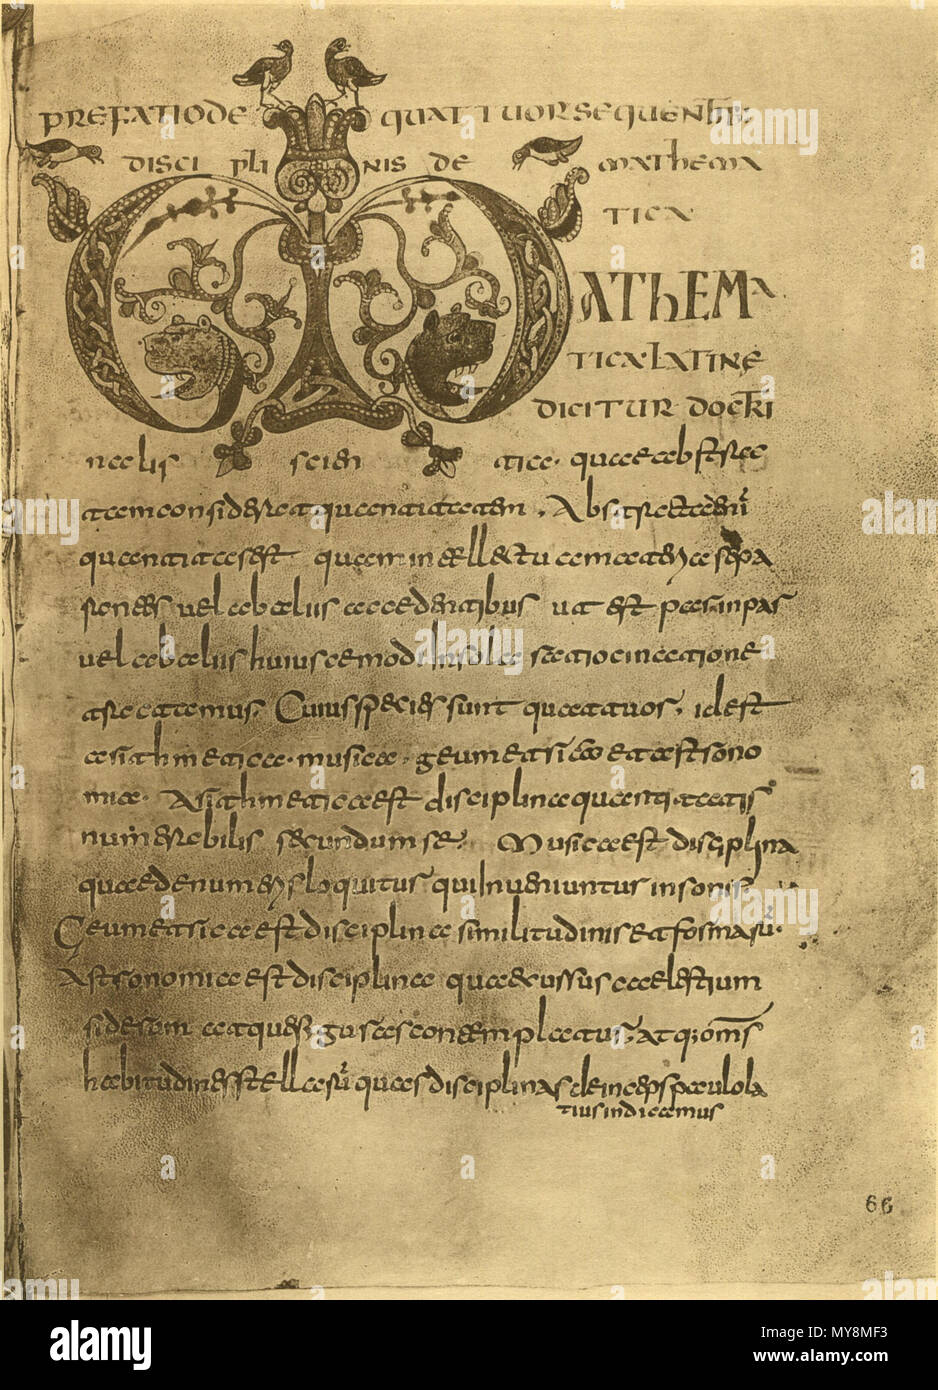 PREFATIO DE QUATTUOR SEQUENTIB;
DISCIPLINIS DE MATHEMA
TICA
MATHEMA
TICA LATINE
DICITUR DOCTRI
nalis scientiae. quae abstrac
tam considerat quantitatem. Abstracta eni
quantitas est quam intellectu a materia sepa
rantes vel ab aliis accedentibus ut est par. inpas
vel ab aliis huiuscemodi in sola ratiocinatione
tractamus. Cuius species sunt quattuos. id est
arithmetica. musica. geumetrica et astrono
mica. Arithmetica est disciplina quantitatis
numerabilis secundum se. Musica est disciplina
quae de numeris loquitur qui inveniuntur in sonis.
Geumetrica est disciplina similitudinis et formaru.
Astronomica est disciplina quae cursus caelestium
siderum contemplatur atq; oms
habitudines stellaru quas disciplinas deinceps paulo la
tius indicemus
66
alamy
Image ID: MY8MF3
www.alamy.com